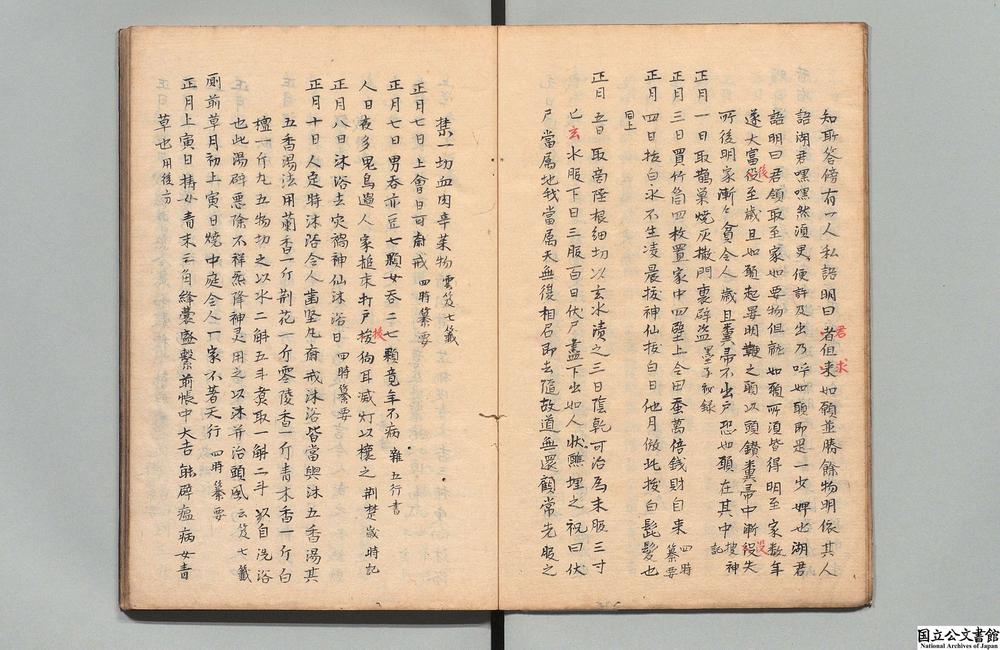 知取答傍有一人私語明曰君者但求如願並勝餘物明依其人
語湖君嘿嘿然須臾便許及出乃呼如願即是一少婢也湖君
語明曰君領取至家如要物但就如願所須皆得明至家数年
遂大富後至歲旦如願起晏明鞭之願以頭鑽糞帚中漸没失
所後明家漸々貧今人歲旦糞帚不出戸恐如願在其中 搜神記
正月一日取鵲巢燒灰撒門裏辟盗 墨子秘録
正月三日買竹筒四枚置家中四壁上令田蚕萬倍錢財自来 四時纂要
正月四日拔白永不生凌晨拔神仙拔白日他月倣此拔白髭髮也
同上
正月五日取商陸根細切以玄水漬之三日陰乾可治為末服三寸
匕玄水服下日三服百日伏尸盡下出如人状醮埋之祝曰伏
尸當属地我當属天無復相召即去隨故道無還顧常先服之
禁一切血肉辛菜物 雲笈七籤
正月七日上會日可斎戒 四時纂要
正月七日男吞赤豆七顆女吞二七顆竟年不病 雜五行書
人日夜多鬼鳥過人家搥床打戸拔狗耳滅灯以禳之 荆楚歲時記
正月八日沐浴去灾禍神仙沐浴日 四時纂要
正月十日人定時沐浴令人齒堅凡斎戒沐浴皆當與沐五香湯其
五香湯法用蘭香一斤荆花一斤零陵香一斤青木香一斤白
檀一斤凡五物切之以水二斛五斗煮取一斛二斗以自洗浴
也此湯辟悪除不祥炁降神灵用之以沐并治頭風 云笈七籤
厠前草月初上寅日燒中庭令人一家不著天行 四時纂要
正月上寅日搗女青末三角絳囊盛繫前帳中大吉能辟瘟病女青
草也 用後方
国立公文書館
National Archives of Japan